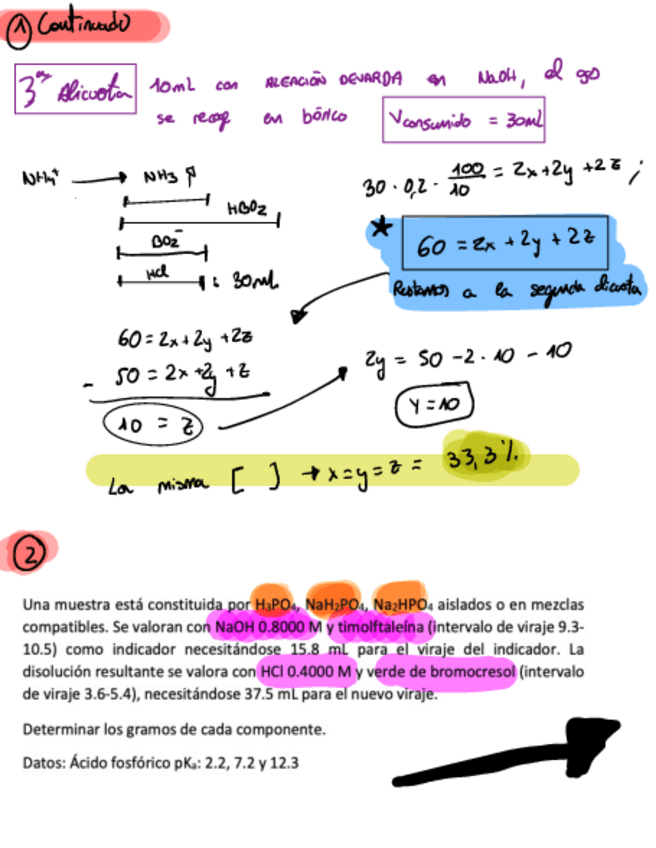 ① Continuado
3ª Alicuota 10mL con ALEACIÓN DEVARDA en NaOH, el gas
se recog en bórico Vconsumido = 30mL
NH₄⁺ → NH₃ ↑ 30 · 0,2 · 100/10 = 2x+2y+2z ;
HBO₂
BO₂⁻ ★ 60 = 2x + 2y + 2z
HCl : 30mL Restamos a la segunda alicuota
60 = 2x + 2y + 2z
- 50 = 2x + 2y + z 2y = 50 - 2 · 10 - 10
10 = z Y = 10
La misma [ ] → x=y=z = 33,3 %.
②
Una muestra está constituida por H₃PO₄, NaH₂PO₄, Na₂HPO₄ aislados o en mezclas
compatibles. Se valoran con NaOH 0.8000 M y timolftaleína (intervalo de viraje 9.3-
10.5) como indicador necesitándose 15.8 mL para el viraje del indicador. La
disolución resultante se valora con HCl 0.4000 M y verde de bromocresol (intervalo
de viraje 3.6-5.4), necesitándose 37.5 mL para el nuevo viraje.
Determinar los gramos de cada componente.
Datos: Ácido fosfórico pKₐ: 2.2, 7.2 y 12.3